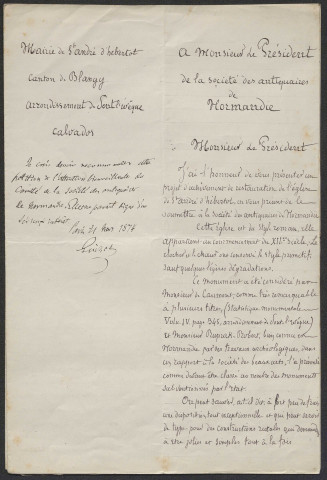 Mairie de St André d'hébertot
Canton de Blangy
arrondissement de Pont l'évêque
Calvados
Je crois devoir recommander cette
pétition à l'attention bienveillante du
Comité de la Société des antiquaires
de Normandie. L'œuvre paraît digne d'un
Paris 21 Mars 1874
Guizot
A Monsieur Le Président
de la société des antiquaires
de
Normandie
Monsieur Le Président
J'ai l'honneur de vous présenter un
projet d'achèvement de restauration de l'église
de St André d'hébertot, en vous priant de le
soumettre à la société des antiquaires de Normandie.
Cette église est du style roman, elle
appartient au commencement du XIIme Siècle. Le
clocher et le chœur ont conservé le style primitif,
sauf quelques légères dégradations.
Le monument a été considéré par
Monsieur de Caumont, comme très remarquable
à plusieurs titres, (Statistique monumentale
Vol. IV. page 345, arrondissement de Pont l'évêque)
et Monsieur Ruprich Robert, bien connu en
Normandie par ses travaux archéologiques, dans
un rapport à la société des beaux arts, l'a présenté
comme devant être classé au nombre des monuments
subventionnés par l'état.
On peut
une disposition tout exceptionnelle et qui peut servir
de type pour des constructions rurales qui demandent
à être jolies et simples tout à la fois